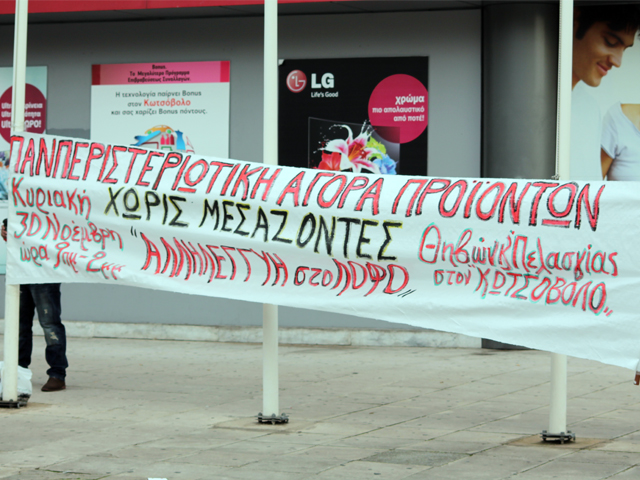 Bonus
Το Μεγαλύτερο Πρόγραμμα
Επιβραβεύσεως Συναλλαγών.
Η τεχνολογία παίρνει Bonus
στο Κωτσόβολο
και σας χαρίζει Bonus πόντους.
LG
Life's Good
χρώμα
πιο απολαυστικό
από ποτέ!
ΠΑΝΠΕΡΙΣΤΕΡΙΩΤΙΚΗ ΑΓΟΡΑ ΠΡΟΪΟΝΤΩΝ
Κυριακή ΧΩΡΙΣ ΜΕΣΑΖΟΝΤΕΣ Θηβών & Πελασγίας
30 Νοέμβρη "ΑΛΛΗΛΕΓΓΥΗ στο ΛΟΦΟ" στον "ΚΩΤΣΟΒΟΛΟ"
ώρα 9πμ-2μμ